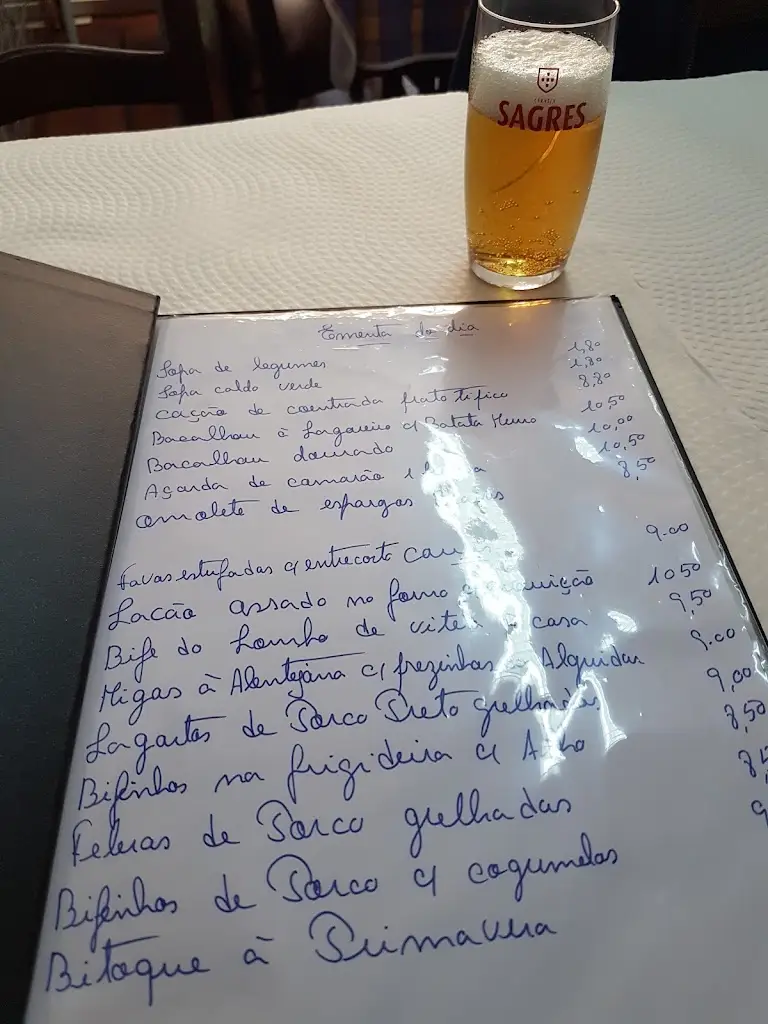 SAGRES
Ementa do dia
Sopa de legumes 1,80
Sopa caldo verde 1,80
Cação de coentrada prato tipico 8,80
Bacalhau à Lagareiro c/ Batata Murro 10,50
Bacalhau dourado 10,00
Açarda de camarão 10,50
Omolete de espargos 8,50
Favas estufadas c/ entrecosto 9.00
Lacão assado no forno 10 50
Bife do Lombo de vitela casa 9,50
Migas à Alentejana c/ prezinhas Alguidar 9.00
Lagartos de Porco Preto grelhados 9,00
Bifinhos na frigideira c/ Alho 8,50
Febras de Porco grelhadas
Bifinhos de Porco c/ cogumelos
Bitoque à Primavera